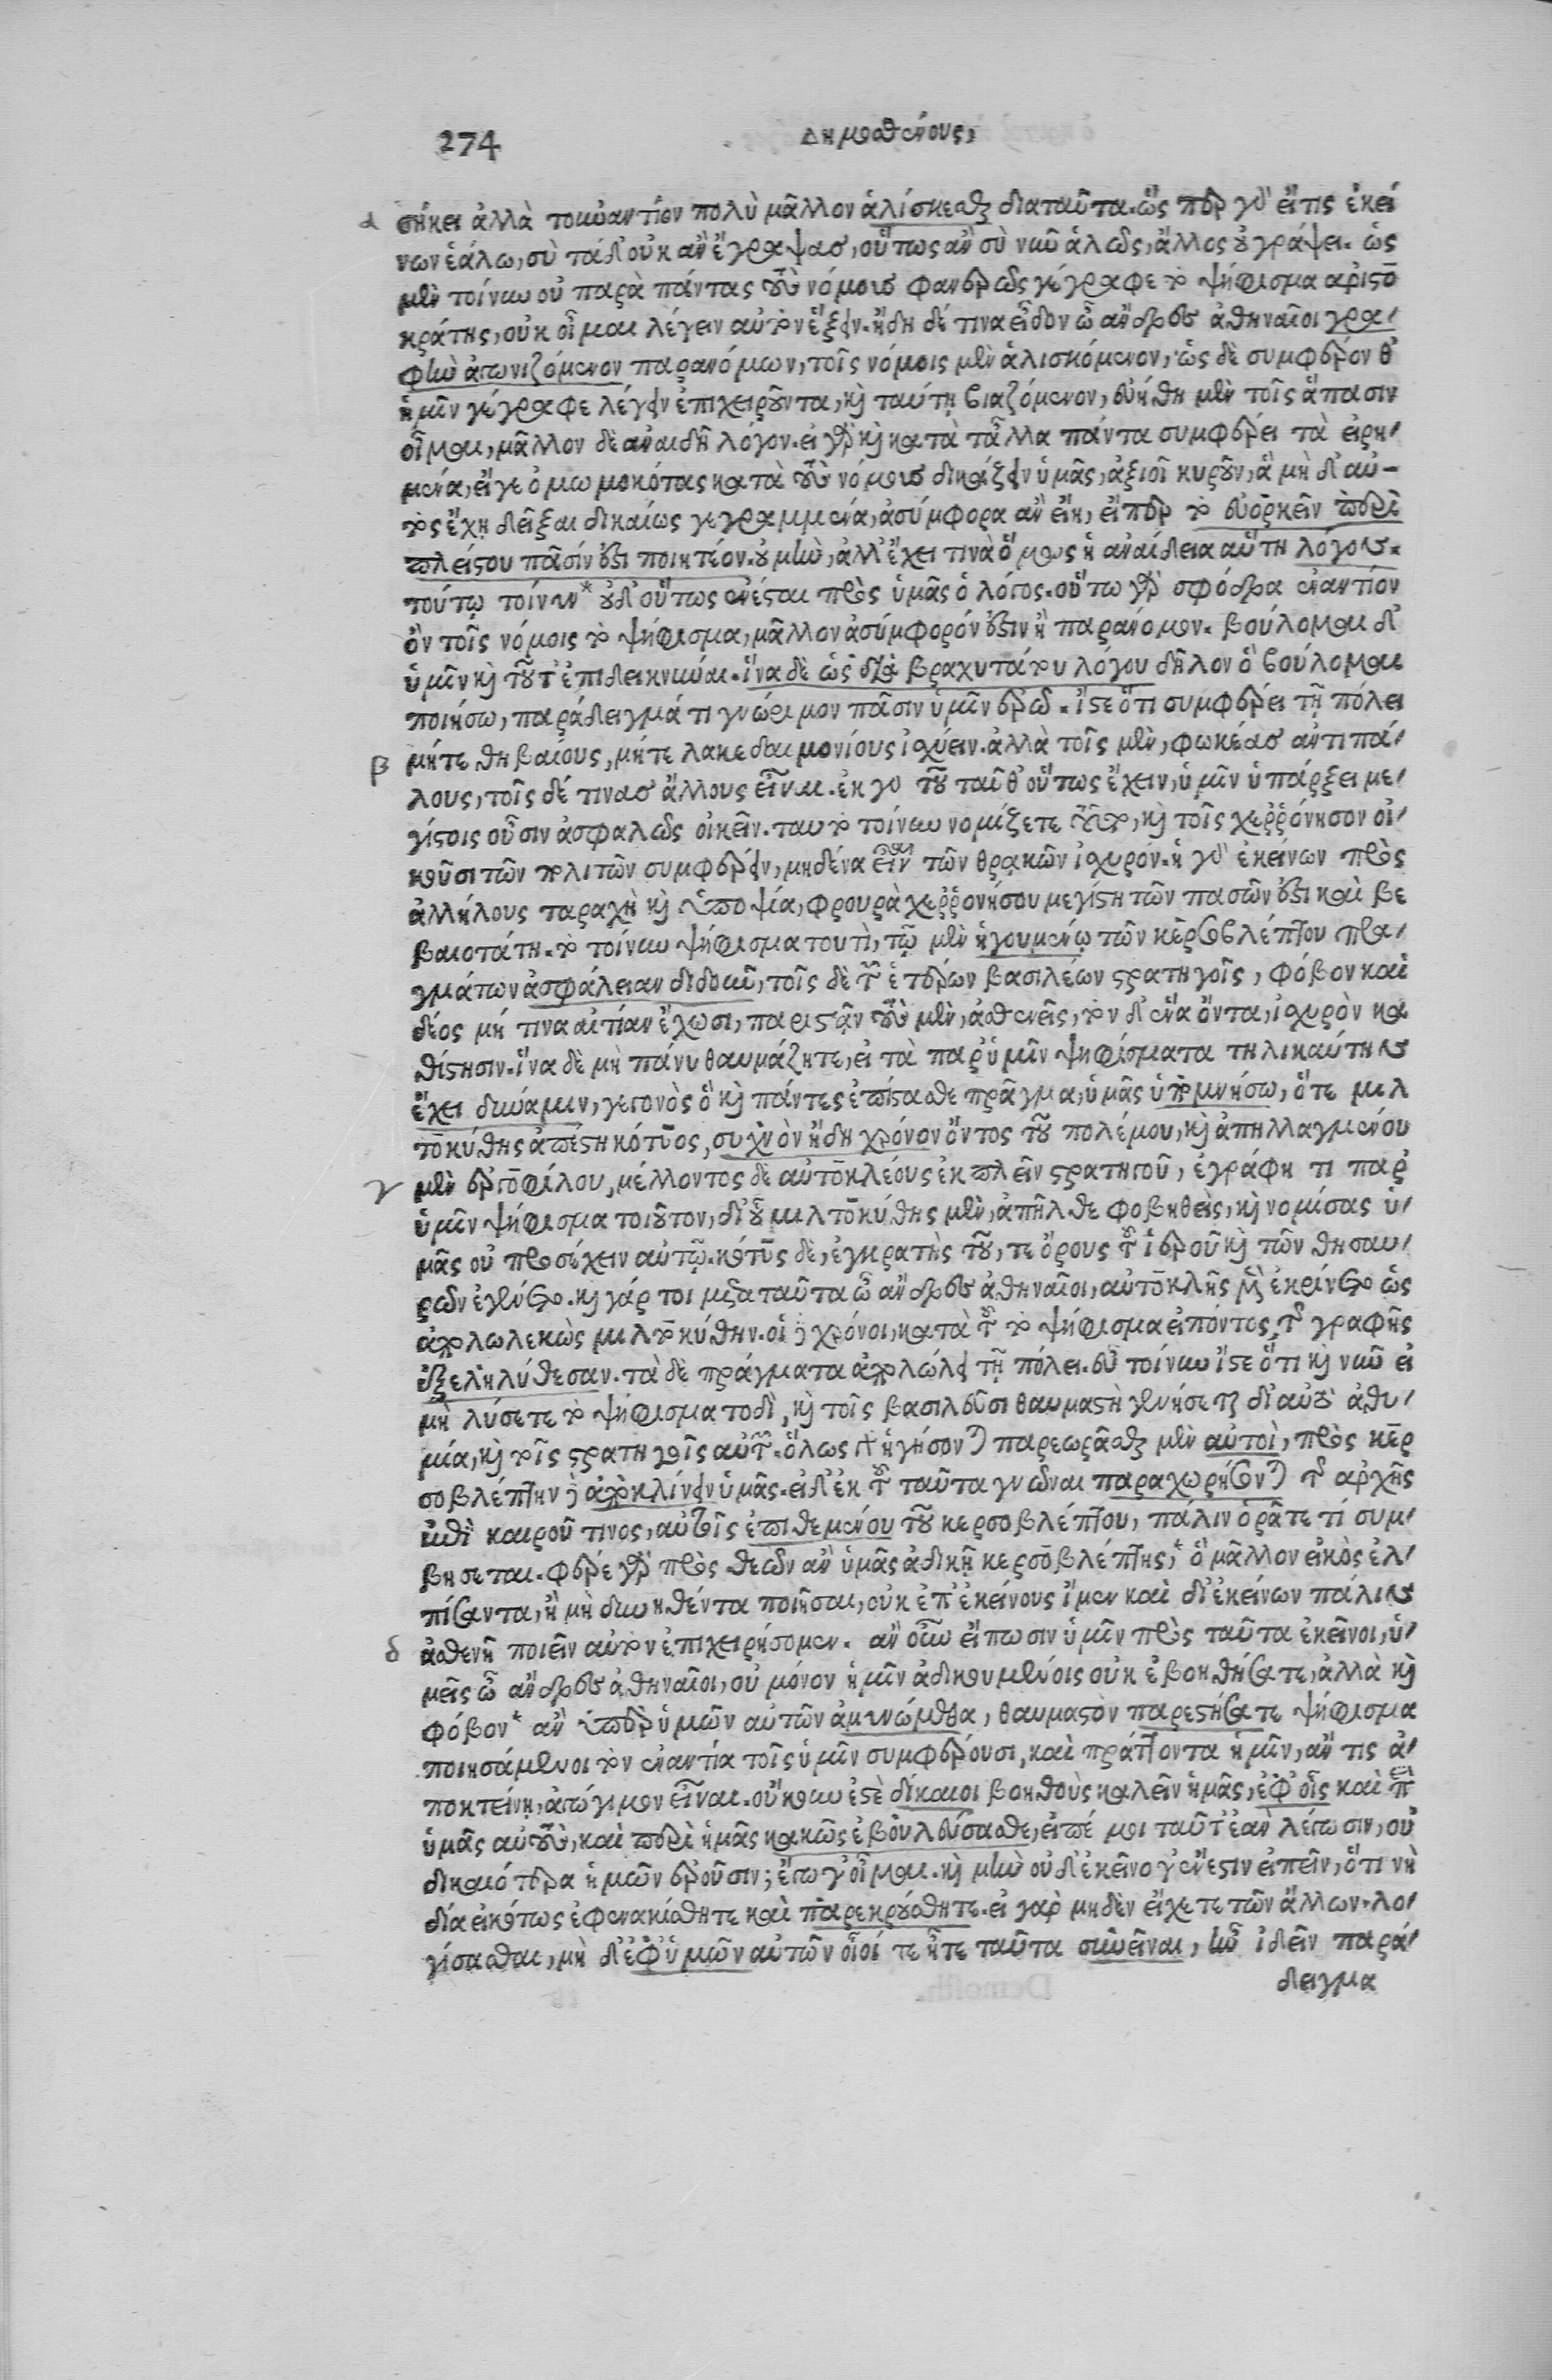 274
Δημοσθένους,
α σήκει ἀλλὰ τοὐναντίον πολὺ μᾶλλον ἁλίσκεσθαι διαταῦτα. ὥς περ γὰρ εἴτις ἐκεί
νων ἑάλω, σὺ τάδ' οὐκ ἂν ἔγραψας, οὕπως ἂν σὺ νῦν ἁλῶς, ἄλλος οὐ γράψει. ὡς
μὲν τοίνυν οὐ παρὰ πάντας τοὺς νόμους φανερῶς γέγραφε τὸ ψήφισμα ἀριστο
κράτης, οὐκ οἶμαι λέγειν αὐτὸν ἕξειν. ἤδη δέ τινα εἶδον ὦ ἄνδρες ἀθηναῖοι γρα/
φὴν ἀγωνιζόμενον παρανόμων, τοῖς νόμοις μὲν ἁλισκόμενον, ὡς δὲ συμφέρονθ'
ἡμῖν γέγραφε λέγειν ἐπιχειροῦντα, καὶ ταύτῃ βιαζόμενον, εὐήθη μὲν τοῖς ἅπασιν
οἶμαι, μᾶλλον δὲ ἀναιδῆ λόγον. εἰ γὰρ καὶ κατὰ τἆλλα πάντα συμφέρει τὰ εἰρη/
μένα, εἴγε ὀμωμοκότας κατὰ τοὺς νόμους δικάζειν ὑμᾶς, ἀξιοῖ κυροῦν, ἃ μὴ δ' αὐ-
τὸς ἔχῃ δεῖξαι δικαίως γεγραμμένα, ἀσύμφορα ἂν εἴη, εἴπερ τὸ εὐορκεῖν περὶ
πλείστου πᾶσίν ἐστι ποιητέον. οὐ μὴν, ἀλλ' ἔχει τινὰ ὅμως ἡ ἀναίδεια αὕτη λόγον.
τούτῳ τοίνυν* οὐδ' οὕτως ἐνέσται πρὸς ὑμᾶς ὁ λόγος. οὕτω γὰρ σφόδρα ἐναντίον
ὂν τοῖς νόμοις τὸ ψήφισμα, μᾶλλον ἀσύμφορόν ἐστιν ἢ παράνομον. βούλομαι δ'
ὑμῖν καὶ τοῦτ' ἐπιδεικνύναι. ἵνα δὲ ὡς διὰ βραχυτάτου λόγου δῆλον ὃ βούλομαι
ποιήσω, παράδειγμά τι γνώριμον πᾶσιν ὑμῖν ἐρῶ. ἴστε ὅτι συμφέρει τῇ πόλει
β μήτε θηβαίους, μήτε λακεδαιμονίους ἰσχύειν. ἀλλὰ τοῖς μὲν, φωκέας ἀντιπά/
λους, τοῖς δέ τινας ἄλλους εἶναι. ἐκ γὰρ τοῦ ταῦθ' οὕτως ἔχειν, ὑμῖν ὑπάρξει με/
γίστοις οὖσιν ἀσφαλῶς οἰκεῖν. ταυτὸ τοίνυν νομίζετε τοῦτο, καὶ τοῖς χερρόνησον οἰ/
κοῦσι τῶν πολιτῶν συμφέρειν, μηδένα εἶναι τῶν θρακῶν ἰσχυρόν. ἡ γὰρ ἐκείνων πρὸς
ἀλλήλους ταραχὴ καὶ ὑποψία, φρουρὰ χερρονήσου μεγίστη τῶν πασῶν ἐστι καὶ βε
βαιοτάτη. τὸ τοίνυν ψήφισμα τουτὶ, τῷ μὲν ἡγουμένῳ τῶν κερσοβλέπτου πρα/
γμάτων ἀσφάλειαν διδοῦν, τοῖς δὲ τῶν ἑτέρων βασιλέων στρατηγοῖς, φόβον καὶ
δέος μή τινα αἰτίαν ἔχωσι, παριστᾶν τοὺς μὲν, ἀσθενεῖς, τὸν δ' ἕνα ὄντα, ἰσχυρὸν κα
θίστησιν. ἵνα δὲ μὴ πάνυ θαυμάζητε, εἰ τὰ παρ' ὑμῖν ψηφίσματα τηλικαύτην
ἔχει δύναμιν, γεγονὸς ὃ καὶ πάντες ἐπίστασθε πρᾶγμα, ὑμᾶς ὑπομνήσω, ὅτε μιλ
τοκύθης ἀπέστη κότυος, συχνὸν ἤδη χρόνον ὄντος τοῦ πολέμου, καὶ ἀπηλλαγμένου
γ μὲν ἐργοφίλου, μέλλοντος δὲ αὐτοκλέους ἐκπλεῖν στρατηγοῦ, ἐγράφη τι παρ'
ὑμῖν ψήφισμα τοιοῦτον, δι' οὗ μιλτοκύθης μὲν, ἀπῆλθε φοβηθεὶς, καὶ νομίσας ὑ/
μᾶς οὐ προσέχειν αὐτῷ. κότυς δὲ, ἐγκρατὴς τοῦ, τε ὄρους τοῦ ἱεροῦ καὶ τῶν θησαυ/
ρῶν ἐγένετο. καὶ γάρ τοι μετὰ ταῦτα ὦ ἄνδρες ἀθηναῖοι, αὐτοκλῆς μὲν ἐκρίνετο ὡς
ἀπολωλεκὼς μιλτοκύθην. οἱ δὲ χρόνοι, κατὰ τοῦ τὸ ψήφισμα εἰπόντος τῆς γραφῆς
ἐξεληλύθεσαν. τὰ δὲ πράγματα ἀπολώλει τῇ πόλει. εὖ τοίνυν ἴστε ὅτι καὶ νῦν εἰ
μὴ λύσετε τὸ ψήφισμα τοδὶ, καὶ τοῖς βασιλεῦσι θαυμαστὴ γενήσεται δι' αὐτὸ ἀθυ/
μία, καὶ τοῖς στρατηγοῖς αὐτῶν. ὅλως γὰρ ἡγήσονται παρεωρᾶσθαι μὲν αὐτοὶ, πρὸς κερ
σοβλέπτην δὲ ἀποκλίνειν ὑμᾶς. εἰ δ' ἐκ τοῦ ταῦτα γνῶναι παραχωρήσονται τῆς ἀρχῆς
ἐπὶ καιροῦ τινος, αὐτοῖς ἐπιθεμένου τοῦ κερσοβλέπτου, πάλιν ὁρᾶτε τί συμ/
βήσεται. φέρε γὰρ πρὸς θεῶν ἂν ὑμᾶς ἀδικῇ κερσοβλέπτης,* ὃ μᾶλλον εἰκὸς ἐλ/
πίσαντα, ἢ μὴ δυνηθέντα ποιῆσαι, οὐκ ἐπ' ἐκείνους ἴμεν καὶ δι' ἐκείνων πάλιν
δ ἀσθενῆ ποιεῖν αὐτὸν ἐπιχειρήσομεν. ἂν οὖν εἴπωσιν ὑμῖν πρὸς ταῦτα ἐκεῖνοι, ὑ/
μεῖς ὦ ἄνδρες ἀθηναῖοι, οὐ μόνον ἡμῖν ἀδικουμένοις οὐκ ἐβοηθήσατε, ἀλλὰ καὶ
φόβον* ἂν ὑπὲρ ὑμῶν αὐτῶν ἀμυνώμεθα, θαυμαστὸν παρεστήσατε ψήφισμα
ποιησάμενοι τὸν ἐναντία τοῖς ὑμῖν συμφέρουσι, καὶ πράττοντα ἡμῖν, ἄν τις ἀ/
ποκτείνῃ, ἀγώγιμον εἶναι. οὔκουν ἐστὲ δίκαιοι βοηθοὺς καλεῖν ἡμᾶς, ἐφ' οἷς καὶ περὶ
ὑμᾶς αὐτοὺς, καὶ περὶ ἡμᾶς κακῶς ἐβουλεύσασθε, εἰπέ μοι ταῦτ' ἐὰν λέγωσιν, οὐ
δικαιότερα ἡμῶν ἐροῦσιν; ἔγωγ' οἶμαι. καὶ μὴν οὐδ' ἐκεῖνο γ' ἔνεστιν εἰπεῖν, ὅτι νὴ
δία εἰκότως ἐφενακίσθητε καὶ παρεκρούσθητε. εἰ γὰρ μηδὲν εἴχετε τῶν ἄλλων λο/
γίσασθαι, μὴ δ' ἐφ' ὑμῶν αὐτῶν οἷοί τε ἦτε ταῦτα συνεῖναι, ἦν ἰδεῖν παρά/
δειγμα